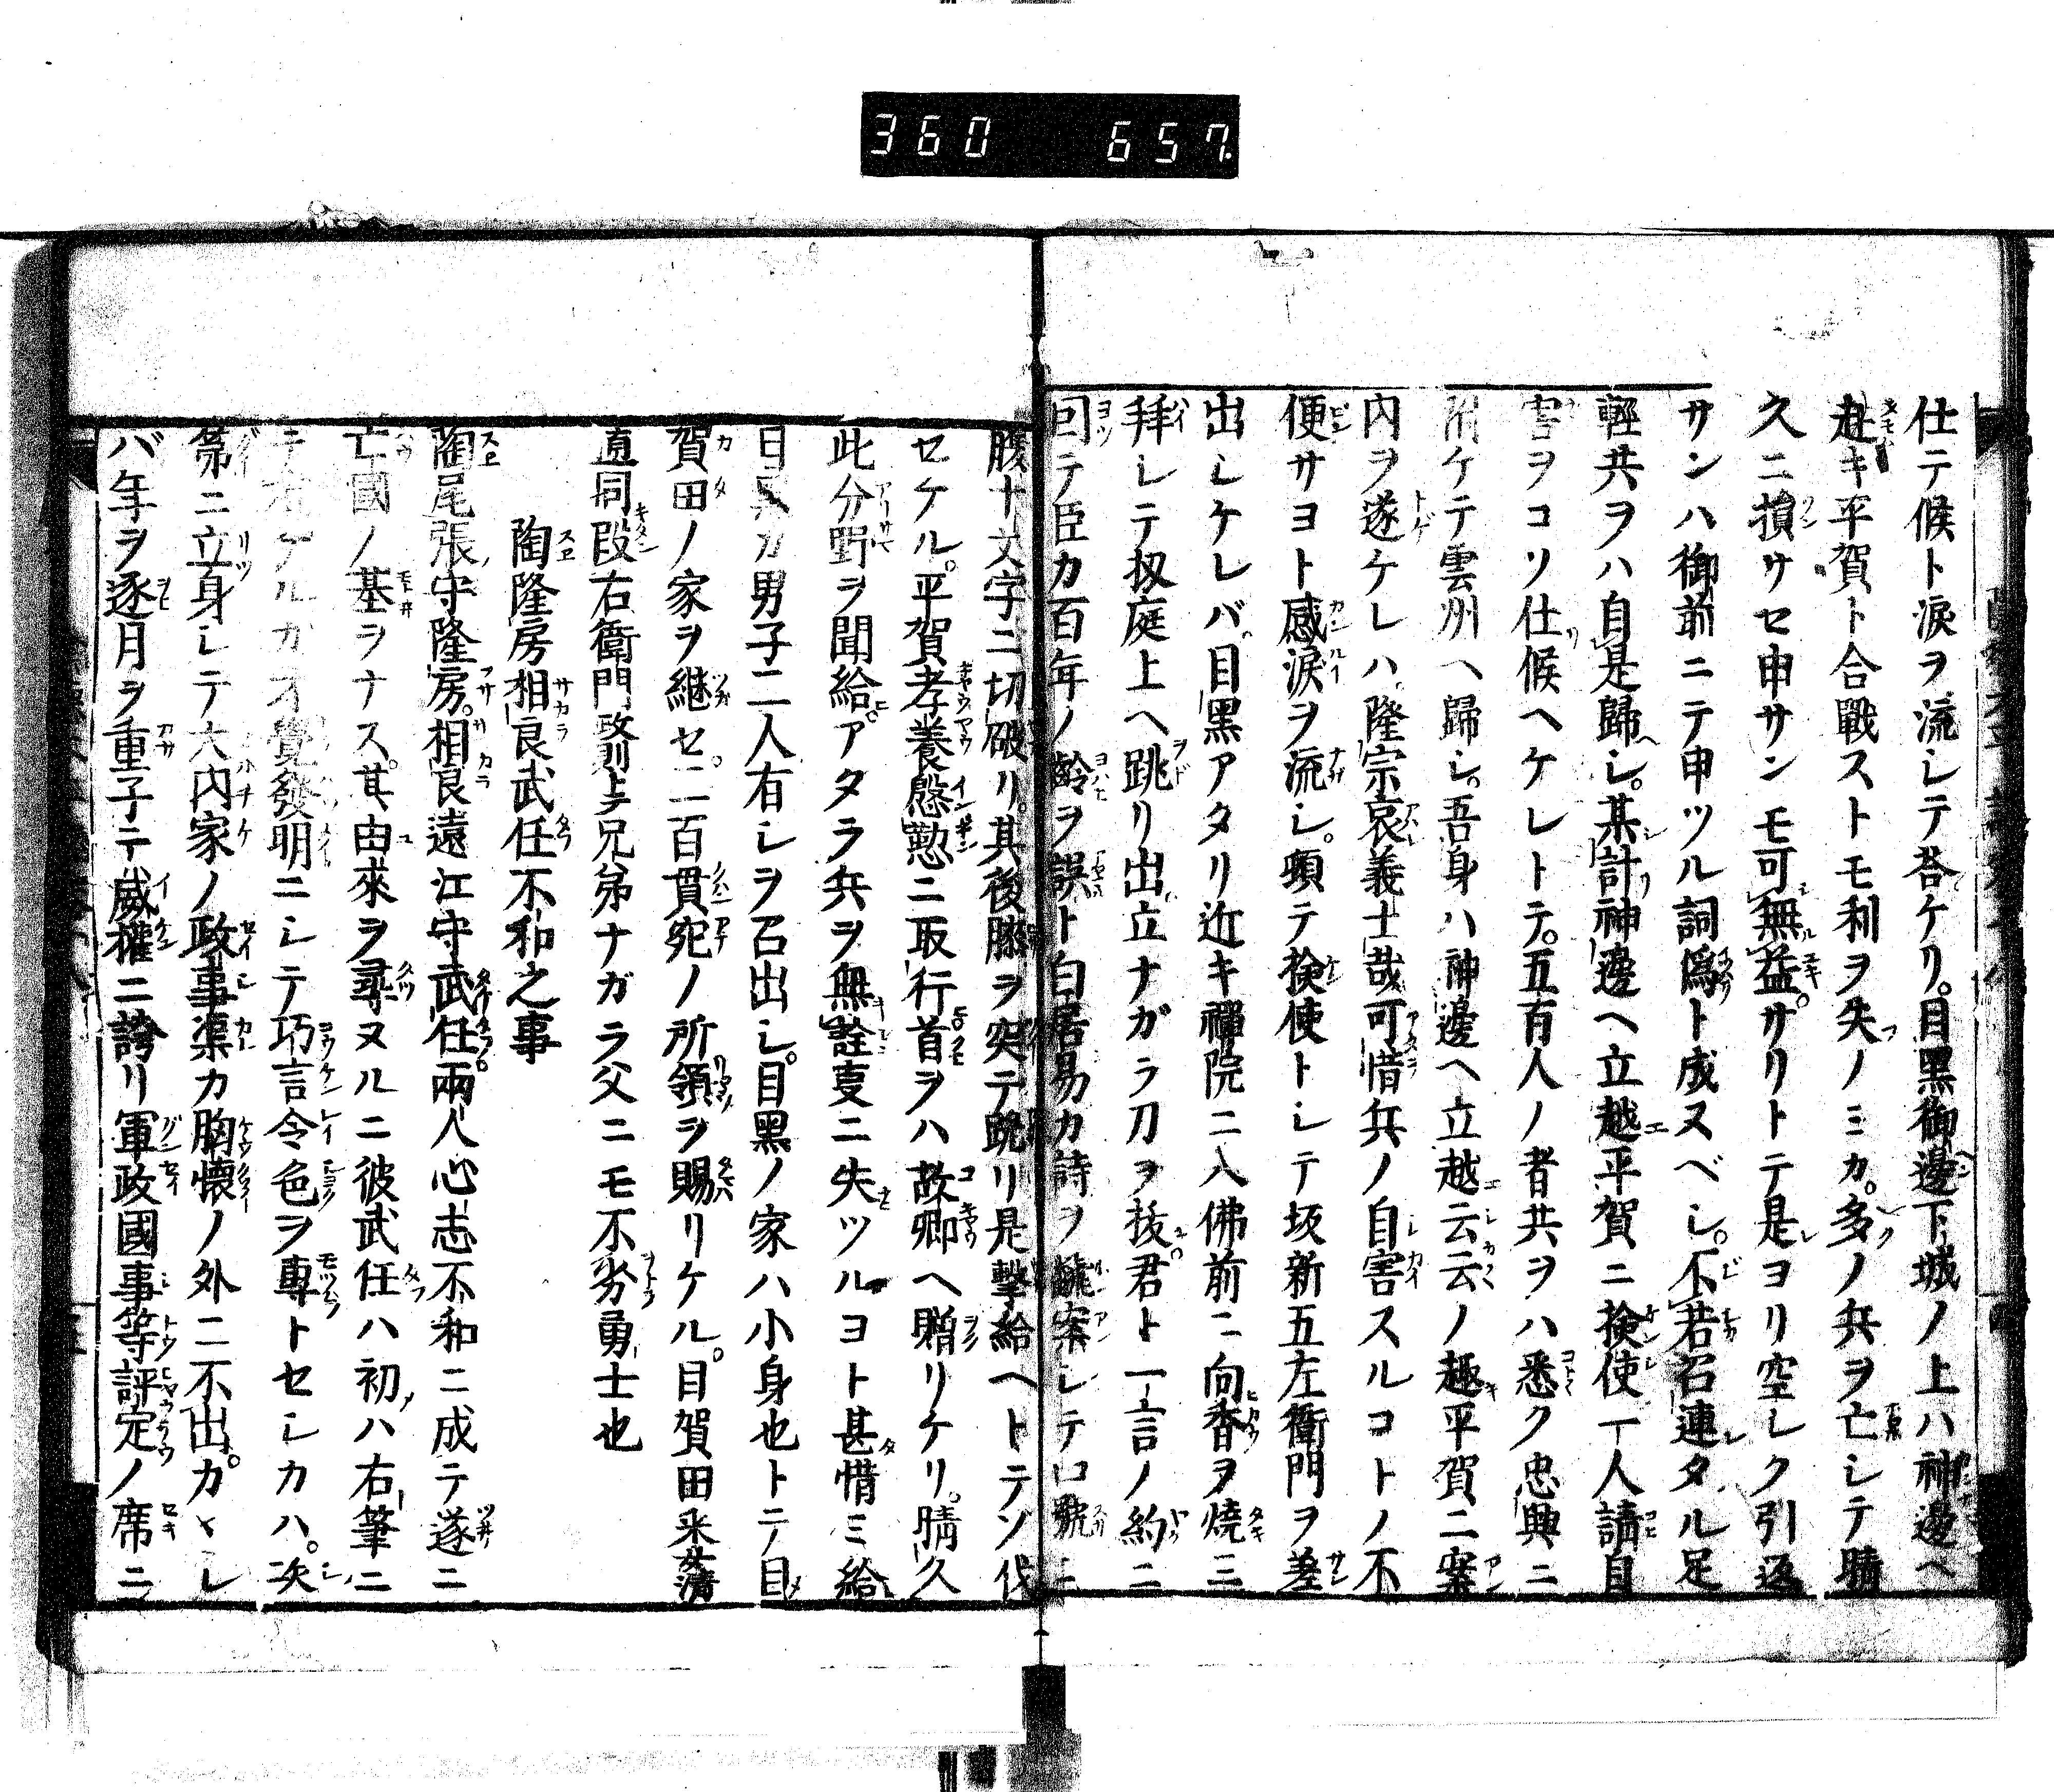 360 657
仕テ候ト涙ヲ流シテ荅ケリ。目黒御邊下城ノ上ハ神邊ヘ
赴キ平賀ト合戰ストモ利ヲ失ノミカ。多ノ兵ヲ亡シテ晴
久ニ損サセ申サンモ可無益。サリトテ是ヨリ空シク引返
サンハ御前ニテ申ツル詞僞ト成ヌベシ。不若召連タル足
輕共ヲハ自是歸シ。某計神邊ヘ立越平賀ニ検使一人請自
害ヲコソ仕候ヘケレトテ。五百人ノ者共ヲハ悉ク忠興ニ
附ケテ雲州ヘ歸シ。吾身ハ神邊ヘ立越云云ノ趣平賀ニ案
内ヲ遂ケレハ。隆宗哀義士哉可惜兵ノ自害スルコトノ不
便サヨト感涙ヲ流シ。頓テ検使トシテ坂新五左衛門ヲ差
出シケレバ。目黒アタリ近キ禪院ニ入佛前ニ向香ヲ燒三
拜シテ扨庭上ヘ跳リ出立ナガラ刀ヲ抜君ト一言ノ約ニ
回テ臣カ百年ノ齢ヲ誤ト白居易カ詩ヲ飜案シテ口號ニ
腹十文字ニ切破リ。其後膝ヲ突テ跪リ是撃給ヘトテソ伐
セケル。平賀孝養慇懃ニ取行首ヲハ故郷ヘ贈リケリ。晴久
此分野ヲ聞給。アタラ兵ヲ無詮叓ニ失ツルヨト甚惜ミ給
目黒カ男子二人有シヲ召出シ。目黒ノ家ハ小身也トテ目
賀田ノ家ヲ継セ。二百貫宛ノ所領ヲ賜リケル。目賀田采女清
直同段右衛門政則トテ兄弟ナガラ父ニモ不劣勇士也
陶隆房相良武任不和之事
陶尾張守隆房。相良遠江守武任兩人心志不和ニ成テ遂ニ
亡國ノ基ヲナス。其由來ヲ尋ヌルニ彼武任ハ初ハ右筆ニ
テ有ケルカ才覺發明ニシテ巧言令色ヲ專トセシカハ。次
第ニ立身シテ大内家ノ政事渠カ胸懐ノ外ニ不出。カヽレ
バ年ヲ逐月ヲ重子テ威權ニ誇リ軍政國事等評定ノ席ニ